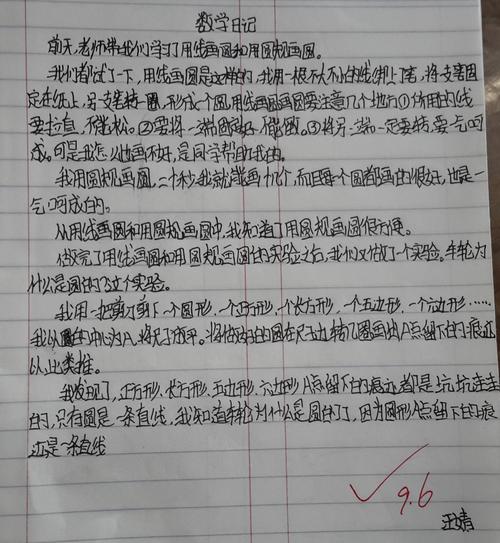 数学日记
前天,老师带我们学习了用线画圆和用圆规画圆。
我们都试了一下,用线画圆是这样的,我用一根不大不小的线绑上笔,将一支笔固
定在纸上,另一支笔转一圈,形成一个圆,用线画圆要注意几个地方①所用的线
要拉直,不能松。②要将一端固定好,不能动。③将另一端一定要转,要一气呵
成。可是我怎么也画不好,是同学帮助我的。
我用圆规画圆,二十秒我就能画十几个,而且每个圆都画的很好,也是一
气呵成的。
从用线画圆和用圆规画圆中,我知道了用圆规画圆很方便。
做完了用线画圆和用圆规画圆的实验之后,我们又做了一个实验。车轮为
什么是圆的了这个实验。
我用一把剪刀剪下一个圆形,一个正方形,一个长方形,一个五边形,一个六边形……
我以圆的中心为A,将尺子放平。将做好的圆在尺边转几圈画出A点留下的痕迹
以此类推。
我发现了,正方形、长方形、五边形、六边形A点留下的痕迹都是坑坑洼洼
的,只有圆是一条直线,我知道车轮为什么是圆的了,因为圆形A点留下的痕
迹是一条直线
9.6
汪婧